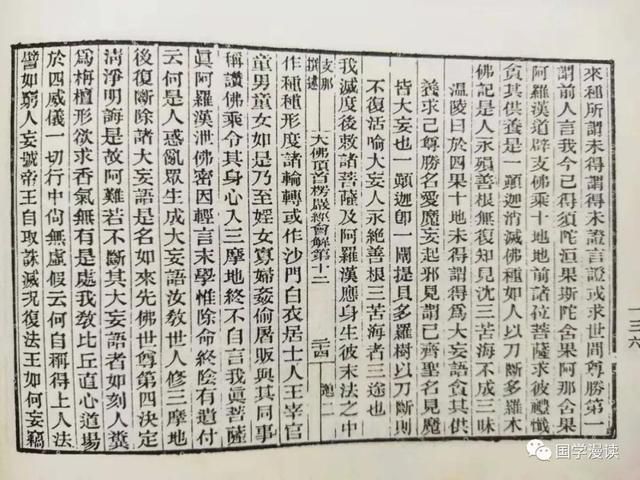 來種所謂未得謂得未證言證或求世間尊勝第一
謂前人言我今已得須陀洹果斯陀含果阿那含果
阿羅漢道辟支佛乘十地地前諸位菩薩求彼禮懺
貪其供養是一顛迦消滅佛種如人以刀斷多羅木
佛記是人永殞善根無復知見沈三苦海不成三昧
溫陵曰於四果十地未得謂得爲大妄語貪其供
養求己尊勝名愛魔妄起邪見謂己齊聖名見魔
皆大妄也一顛迦卽一闡提貝多羅樹以刀斷則
不復活喻大妄人永絕善根三苦海三途也
我滅度後敕諸菩薩及阿羅漢應身生彼末法之中
支那
撰述
大佛頂首楞嚴經會解第十二
作種種形度諸輪轉或作沙門白衣居士人王宰官
童男童女如是乃至婬女寡婦姦偷屠販與其同事
稱讚佛乘令其身心入三摩地終不自言我眞菩薩
眞阿羅漢泄佛密因輕言末學惟除命終陰有遺付
云何是人惑亂眾生成大妄語汝教世人修三摩地
後復斷除諸大妄語是名如來先佛世尊第四決定
清淨明誨是故阿難若不斷其大妄語者如刻人糞
爲栴檀形欲求香氣無有是處我教比丘直心道場
於四威儀一切行中尙無虛假云何自稱得上人法
譬如窮人妄號帝王自取誅滅況復法王如何妄竊
一三六
国学漫读